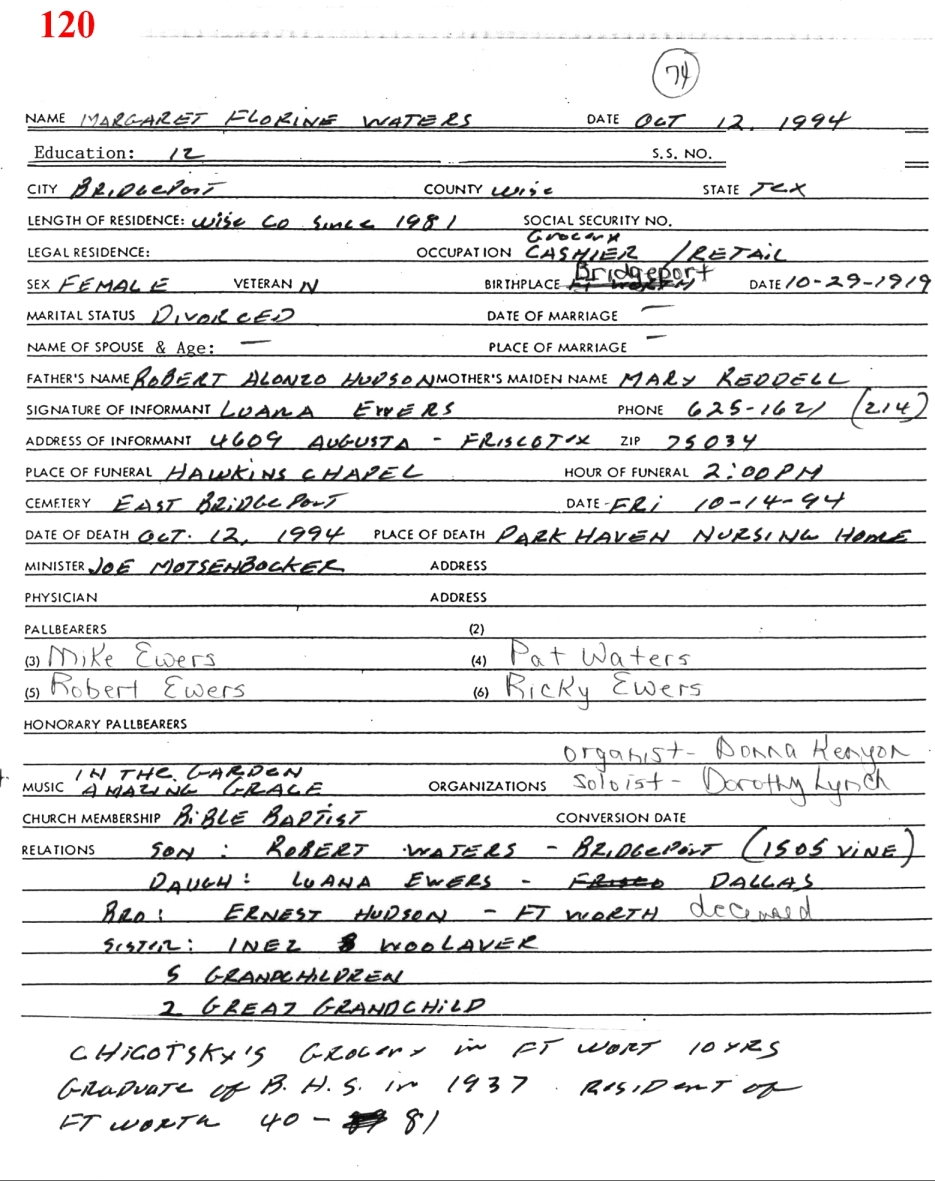 120
74
NAME MARGARET FLORINE WATERS DATE OCT 12, 1994
Education: 12 S.S. NO.
CITY BRIDGEPORT COUNTY WISE STATE TEX
LENGTH OF RESIDENCE: WISE CO SINCE 1981 SOCIAL SECURITY NO.
Grocery
LEGAL RESIDENCE: OCCUPATION CASHIER / RETAIL
Bridgeport
SEX FEMALE VETERAN N BIRTHPLACE FT WORTH DATE 10-29-1919
MARITAL STATUS DIVORCED DATE OF MARRIAGE —
NAME OF SPOUSE & Age: — PLACE OF MARRIAGE —
FATHER'S NAME ROBERT ALONZO HUDSON MOTHER'S MAIDEN NAME MARY REDDELL
SIGNATURE OF INFORMANT LUANA EWERS PHONE 625-1621 (214)
ADDRESS OF INFORMANT 4609 AUGUSTA - FRISCO TEX ZIP 75034
PLACE OF FUNERAL HAWKINS CHAPEL HOUR OF FUNERAL 2:00 PM
CEMETERY EAST BRIDGEPORT DATE - FRI 10-14-94
DATE OF DEATH OCT. 12, 1994 PLACE OF DEATH PARK HAVEN NURSING HOME
MINISTER JOE MOTSENBOCKER ADDRESS
PHYSICIAN ADDRESS
PALLBEARERS (2)
(3) Mike Ewers (4) Pat Waters
(5) Robert Ewers (6) Ricky Ewers
HONORARY PALLBEARERS
organist - Donna Kenyon
IN THE GARDEN
MUSIC AMAZING GRACE ORGANIZATIONS soloist - Dorothy Lynch
CHURCH MEMBERSHIP BIBLE BAPTIST CONVERSION DATE
RELATIONS SON : ROBERT WATERS - BRIDGEPORT (1505 VINE)
DAUGH : LUANA EWERS - FRISCO DALLAS
BRO : ERNEST HUDSON - FT WORTH deceased
SISTER : INEZ WOOLAVER
5 GRANDCHILDREN
2 GREAT GRANDCHILD
CHICOTSKY'S GROCERY in FT WORT 10 YRS
GRADUATE of B.H.S. in 1937. RESIDENT OF
FT WORTH 40 - 81